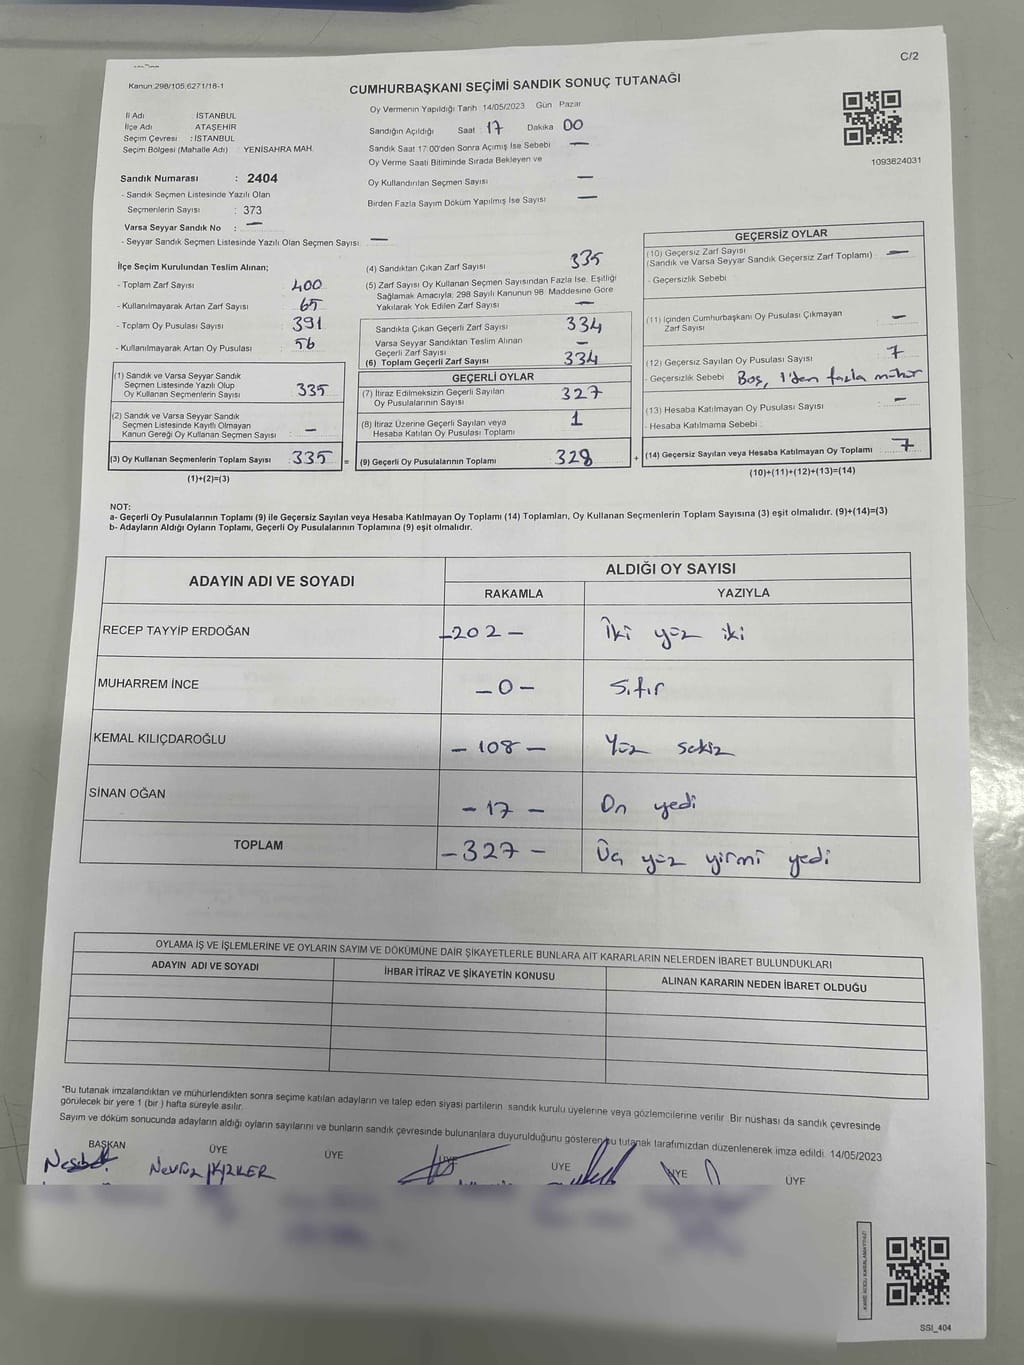 C/2
Kanun 298/105;6271/18-1
CUMHURBAŞKANI SEÇİMİ SANDIK SONUÇ TUTANAĞI
İl Adı İSTANBUL
İlçe Adı ATAŞEHİR
Seçim Çevresi : İSTANBUL
Seçim Bölgesi (Mahalle Adı) YENİSAHRA MAH.
Sandık Numarası : 2404
- Sandık Seçmen Listesinde Yazılı Olan
Seçmenlerin Sayısı : 373
Varsa Seyyar Sandık No : —
- Seyyar Sandık Seçmen Listesinde Yazılı Olan Seçmen Sayısı —
Oy Vermenin Yapıldığı Tarih 14/05/2023 Gün Pazar
Sandığın Açıldığı Saat : 17 Dakika 00
Sandık Saat 17:00'den Sonra Açımış İse Sebebi —
Oy Verme Saati Bitiminde Sırada Bekleyen ve
Oy Kullandırılan Seçmen Sayısı —
Birden Fazla Sayım Döküm Yapılmış İse Sayısı —
1093824031
İlçe Seçim Kurulundan Teslim Alınan;
- Toplam Zarf Sayısı 400
- Kullanılmayarak Artan Zarf Sayısı 65
- Toplam Oy Pusulası Sayısı 391
- Kullanılmayarak Artan Oy Pusulası 56
(1) Sandık ve Varsa Seyyar Sandık
Seçmen Listesinde Yazılı Olup
Oy Kullanan Seçmenlerin Sayısı : 335
(2) Sandık ve Varsa Seyyar Sandık
Seçmen Listesinde Kayıtlı Olmayan
Kanun Gereği Oy Kullanan Seçmen Sayısı : —
(3) Oy Kullanan Seçmenlerin Toplam Sayısı : 335 =
(1)+(2)=(3)
(4) Sandıktan Çıkan Zarf Sayısı 335
(5) Zarf Sayısı Oy Kullanan Seçmen Sayısından Fazla İse, Eşitliği
Sağlamak Amacıyla, 298 Sayılı Kanunun 98. Maddesine Göre
Yakılarak Yok Edilen Zarf Sayısı —
Sandıkta Çıkan Geçerli Zarf Sayısı 334
Varsa Seyyar Sandıktan Teslim Alınan
Geçerli Zarf Sayısı —
(6) Toplam Geçerli Zarf Sayısı 334
GEÇERLİ OYLAR
(7) İtiraz Edilmeksizin Geçerli Sayılan
Oy Pusulalarının Sayısı 327
(8) İtiraz Üzerine Geçerli Sayılan veya
Hesaba Katılan Oy Pusulası Toplamı 1
(9) Geçerli Oy Pusulalarının Toplamı 328 +
GEÇERSİZ OYLAR
(10) Geçersiz Zarf Sayısı
(Sandık ve Varsa Seyyar Sandık Geçersiz Zarf Toplamı) —
- Geçersizlik Sebebi
(11) İçinden Cumhurbaşkanı Oy Pusulası Çıkmayan
Zarf Sayısı —
(12) Geçersiz Sayılan Oy Pusulası Sayısı 7
- Geçersizlik Sebebi Boş, 1'den fazla mühür
(13) Hesaba Katılmayan Oy Pusulası Sayısı —
- Hesaba Katılmama Sebebi
(14) Geçersiz Sayılan veya Hesaba Katılmayan Oy Toplamı 7
(10)+(11)+(12)+(13)=(14)
NOT:
a- Geçerli Oy Pusulalarının Toplamı (9) ile Geçersiz Sayılan veya Hesaba Katılmayan Oy Toplamı (14) Toplamları, Oy Kullanan Seçmenlerin Toplam Sayısına (3) eşit olmalıdır. (9)+(14)=(3)
b- Adayların Aldığı Oyların Toplamı, Geçerli Oy Pusulalarının Toplamına (9) eşit olmalıdır.
ADAYIN ADI VE SOYADI ALDIĞI OY SAYISI
RAKAMLA YAZIYLA
RECEP TAYYİP ERDOĞAN -202- İki yüz iki
MUHARREM İNCE -0- Sıfır
KEMAL KILIÇDAROĞLU -108- Yüz sekiz
SİNAN OĞAN -17- On yedi
TOPLAM -327- Üç yüz yirmi yedi
OYLAMA İŞ VE İŞLEMLERİNE VE OYLARIN SAYIM VE DÖKÜMÜNE DAİR ŞİKAYETLERLE BUNLARA AİT KARARLARIN NELERDEN İBARET BULUNDUKLARI
ADAYIN ADI VE SOYADI İHBAR İTİRAZ VE ŞİKAYETİN KONUSU ALINAN KARARIN NEDEN İBARET OLDUĞU
*Bu tutanak imzalandıktan ve mühürlendikten sonra seçime katılan adayların ve talep eden siyasi partilerin sandık kurulu üyelerine veya gözlemcilerine verilir. Bir nüshası da sandık çevresinde
görülecek bir yere 1 (bir) hafta süreyle asılır.
Sayım ve döküm sonucunda adayların aldığı oyların sayılarını ve bunların sandık çevresinde bulunanlara duyurulduğunu gösteren bu tutanak tarafımızdan düzenlenerek imza edildi. 14/05/2023
BAŞKAN ÜYE ÜYE ÜYE ÜYE ÜYE ÜYE
SSI_404